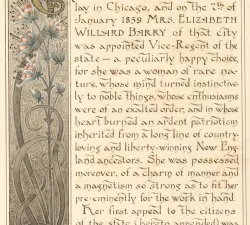 day in Chicago, and on the 7th of
January 1859 MRS. ELIZABETH
WILLARD BARRY of that city
was appointed Vice-Regent of the
state – a peculiarly happy choice,
for she was a woman of rare na-
ture, whose mind turned instinctive-
ly to noble things, whose enthusiasms
were of an exalted order, and in whose
heart burned an ardent patriotism
inherited from a long line of country-
loving and liberty-winning New Eng-
land ancestors. She was possessed
moreover, of a charm of manner and
a magnetism so strong as to fit her
pre-eminently for the work in hand.
Her first appeal to the citizens
of the state (hereto appended) was